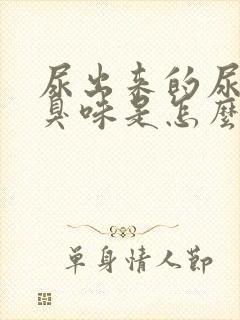 尿出来的尿
臭味是怎麼
单身情人節